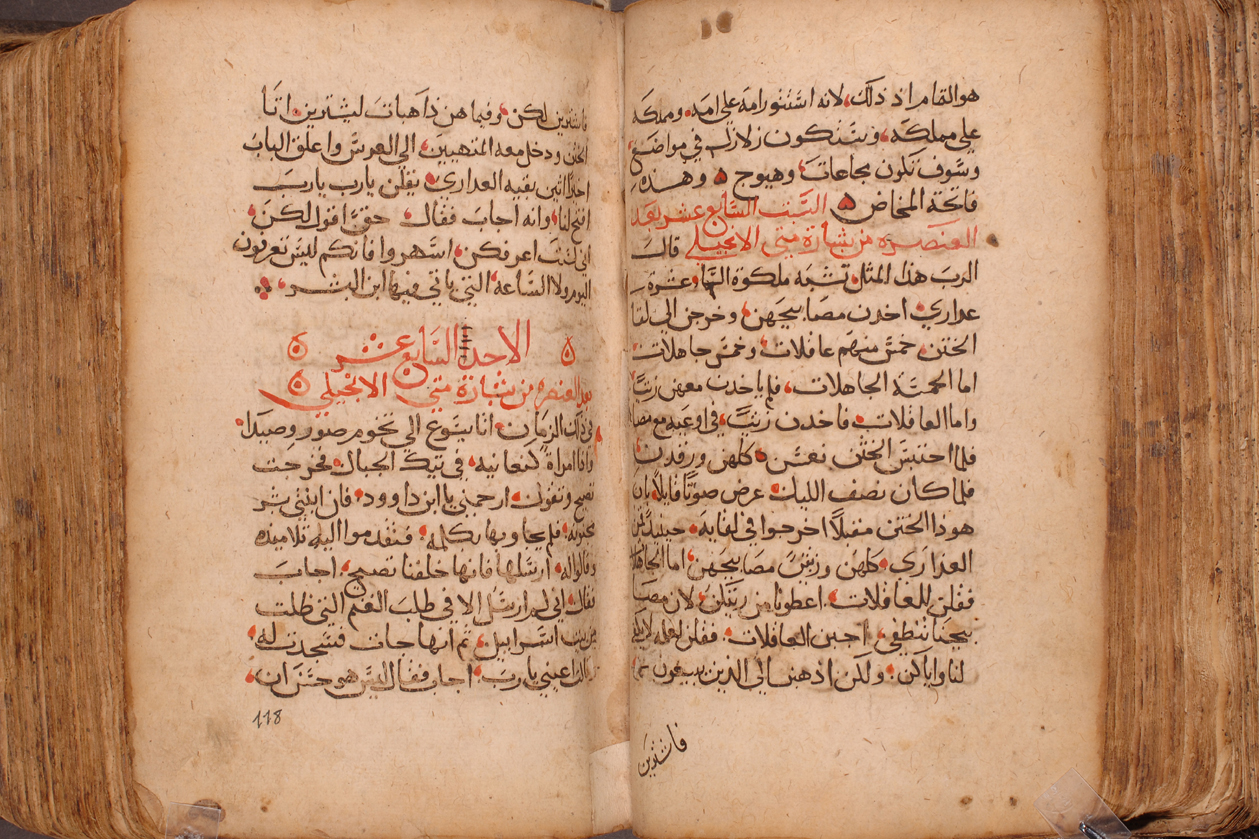 هو القام اذ ذلك، لانه استثورامه على امه، ومملكه
على مملكه، وستكون زلازل في مواضع
وسوف تكون مجاعات، وهيوج ۵ وهذه
فاتحة المخاض ۵ السبت السابع عشر بعد
العنصره من بشارة متى الانجيلي قال
الرب هذا المثل تشبه ملكوة السما، عشرة
عداري، اخدن مصابيحهن، وخرجن الى لقا
الختن، خمس منهم عاقلات، وخمس جاهلات
اما الخمسة الجاهلات، فلم ياخدن معهن زيتاً
واما العاقلات، فاخدن زيتاً، في اوعيه مع مصا
فلما احتبس الختن نعسن، كلهن ورقدن
فلما كان نصف الليل، عرض صوتاً قايلاً، بان
هوذا الختن مقبلاً اخرجوا في لقايه، حينيذ قمن
العداري، كلهن وزينن مصابيحهن، اما الجاهلا
فقلن للعاقلات، اعطونا من زيتكن، لان مصا
بيحنا تنطفي، اجبن العاقلات، فقلن لعله لا يكفي
لنا واياكن، ولكن اذهبنا الى الدين يبيعون
فاشترين
فاشترين لكن، وفيما هن ذاهبات ليشترين اتا
الختن ودخل معه المتهيين، الى العرس واغلق الباب
اخيرا اتين بقيه العداري، يقلن يارب يارب
افتح لنا، وانه اجاب فقال، حقاً اقول لكن،
اني لست اعرفكن، اسهروا فانكم ليس تعرفون
اليوم ولا الساعه، التي ياتي فيها ابن البشر،
۵ الاحد السابع عشر ۵
بعد العنصره من بشارة متى الانجيلي ۵
في ذلك الزمان، اتا يسوع الى تخوم صور وصيدا،
واذا امراة كنعانيه، في تيك الجبال، فخرجت
تصيح وتقول، ارحمني يا ابن داوود، فان ابنتي بشر
مجنونه، فلم يجاوبها بكلمه، فتقدموا اليه تلاميذه
وقالوا له، ارسلها فانها خلفنا تصيح، اجاب
فقال، اني لم ارسل الا في طلب الغنم التي ظلت
من بيت اسراييل، تم انها جات فسجدت له،
قايلة اعيني يا رب، اجاب فقال ليس هو حسن ان،
118